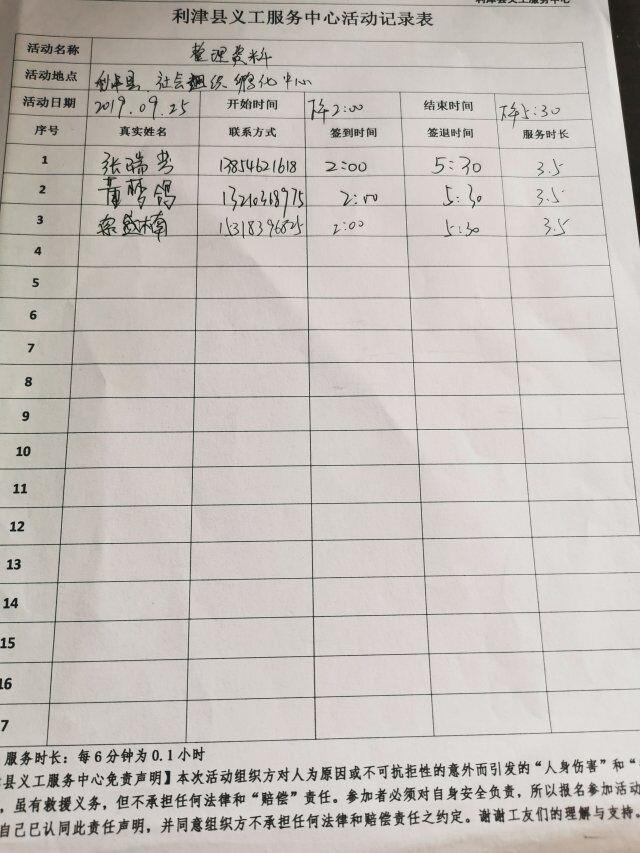 利津县义工服务中心
利津县义工服务中心活动记录表
活动名称 整理资料
活动地点 利津县社会组织孵化中心
活动日期 2019.09.25 开始时间 下午2:00 结束时间 下午5:30
序号 真实姓名 联系方式 签到时间 签退时间 服务时长
1 张瑞芳 13854621618 2:00 5:30 3.5
2 梦鸽 13210318975 2:00 5:30 3.5
3 15318396825 2:00 5:30 3.5
4
5
6
7
8
9
10
11
12
13
14
15
16
7
服务时长：每6分钟为0.1小时
县义工服务中心免责声明】本次活动组织方对人为原因或不可抗拒性的意外而引发的“人身伤害”和“
，虽有救援义务，但不承担任何法律和“赔偿”责任。参加者必须对自身安全负责，所以报名参加活动
自己已认同此责任声明，并同意组织方不承担任何法律和赔偿责任之约定。谢谢工友们的理解与支持。